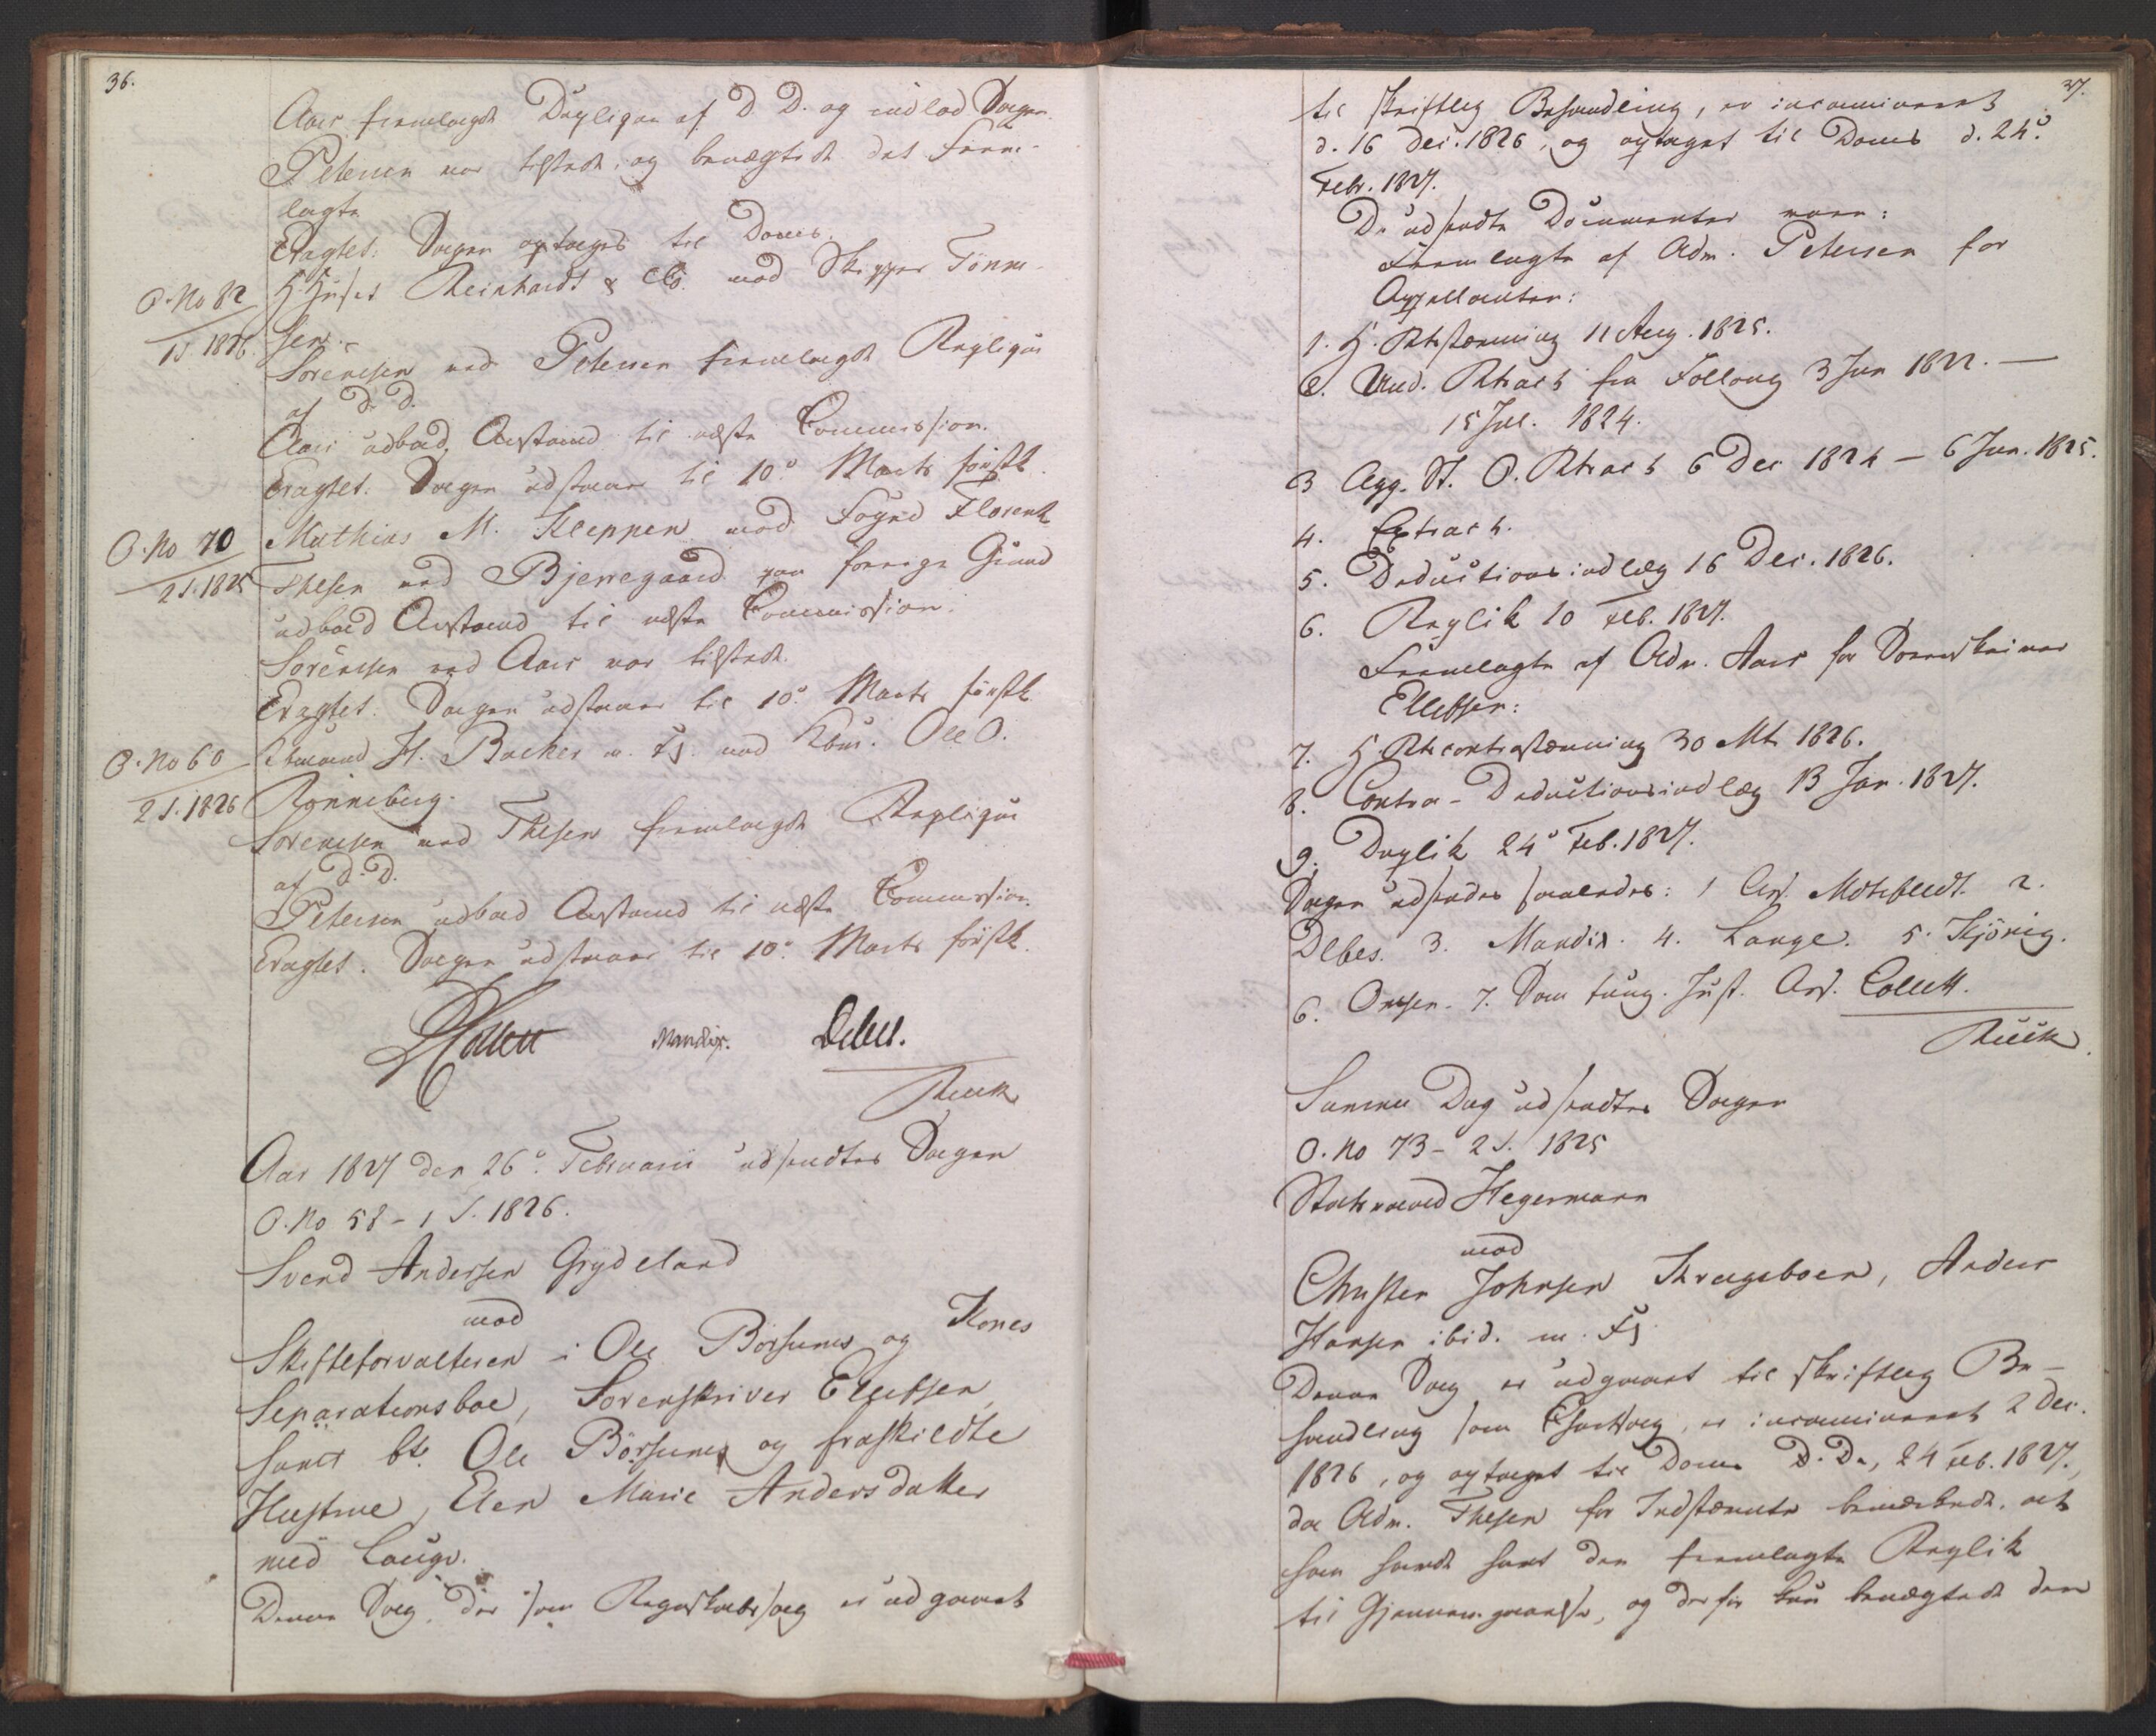 36.
Aars fremlagde Dupliqve af D. D. og indlod Sagen.
Petersen var tilstede, og benægtede det frem-
lagte
Eragtet: Sagen optages til Doms.
O. No 82
1 S. 1826.
H. Huset Reinhardt & Co. mod Skipper Tönne-
sen.
Sörensen ved Petersen fremlagde Repliqve
af D. D.
Aars udbad Anstand til næste Commission.
Eragtet: Sagen udstaaer til 10de Marts förstk.
O. No 70
2 S. 1825
Mathias M. Kleppen mod Foged Florentz
Thesen ved Bjerregaard paa forrige Grund
udbad Anstand til næste Commission.
Sörensen ved Aars var tilstede.
Eragtet: Sagen udstaaer til 10de Marts förstk.
O. No 60
2 S. 1826
H. Backer m. Fl. mod Kbm. Ole O.
Rönneberg.
Sörensen ved Thesen fremlagde Repliqve
af D. D.
Petersen udbad Anstand til næste Commission.
Eragtet: Sagen udstaaer til 10de Marts förstk.
Collett Mandix. Debes.
Aar 1827 den 26de Februarii udsendtes Sagen
O. No 58 - 1 S. 1826.
Svend Andersen Grydeland
mod
Skifteforvalteren i Ole Börsums og Kones
Separationsboe, Sorenskriver Ellefsen,
samt bt. Ole Börsums og fraskildte
Hustrue, Elen Marie Andersdatter
med Laugv.
Denne Sag, der som Regnskabssag er udgaaet
37.
til skriftlig Behandling, er incamineret
d. 16 Dec. 1826, og optaget til Doms d. 24de
Febr. 1827.
De udsendte Documenter vare:
Fremlagte af Adv. Petersen for
Appellanten:
1. H. Rtsstævning 11 Aug. 1825.
2. Und. Rtsact fra Folloug 3 Jun 1822. —
15 Jul. 1824.
3 App. St. O. Rtsact 6 Dec 1824 — 6 Jun. 1825.
4. Extract.
5. Deductionsindlæg 16 Dec. 1826.
6. Replik 10 Feb. 1827.
Fremlagte af Adv. Aars for Sorenskriver
Ellefsen:
7. H. Rtscontrastævning 30 Mt. 1826.
8. Contra-Deductionsindlæg 13 Jan. 1827.
9. Duplik 24de Feb. 1827.
Sagen udsendes saaledes: 1 Ass. Motzfeldt. 2.
Debes. 3. Mandix. 4. Lange. 5. Kjönig.
6. Omsen. 7. Som fung. Just. Ass. Collett.
Samme Dag udsendtes Sagen
O. No 73 - 2 S. 1825
Statsraad Hegermann
mod
Christen Johnsen Skragsboen, Anders
Hansen ibid. m. Fl.
Denne Sag er udgaaet til skriftlig Be-
handling som Extrasag, er incamineret 2 Dec.
1826, og optaget til Doms D. D., 24 Feb. 1827,
da Adv. Thesen for Indstævnte bemærkede, at
han havde havt den fremlagte Replik
til Gjennemgaaelse, og derfor kun benægtede den